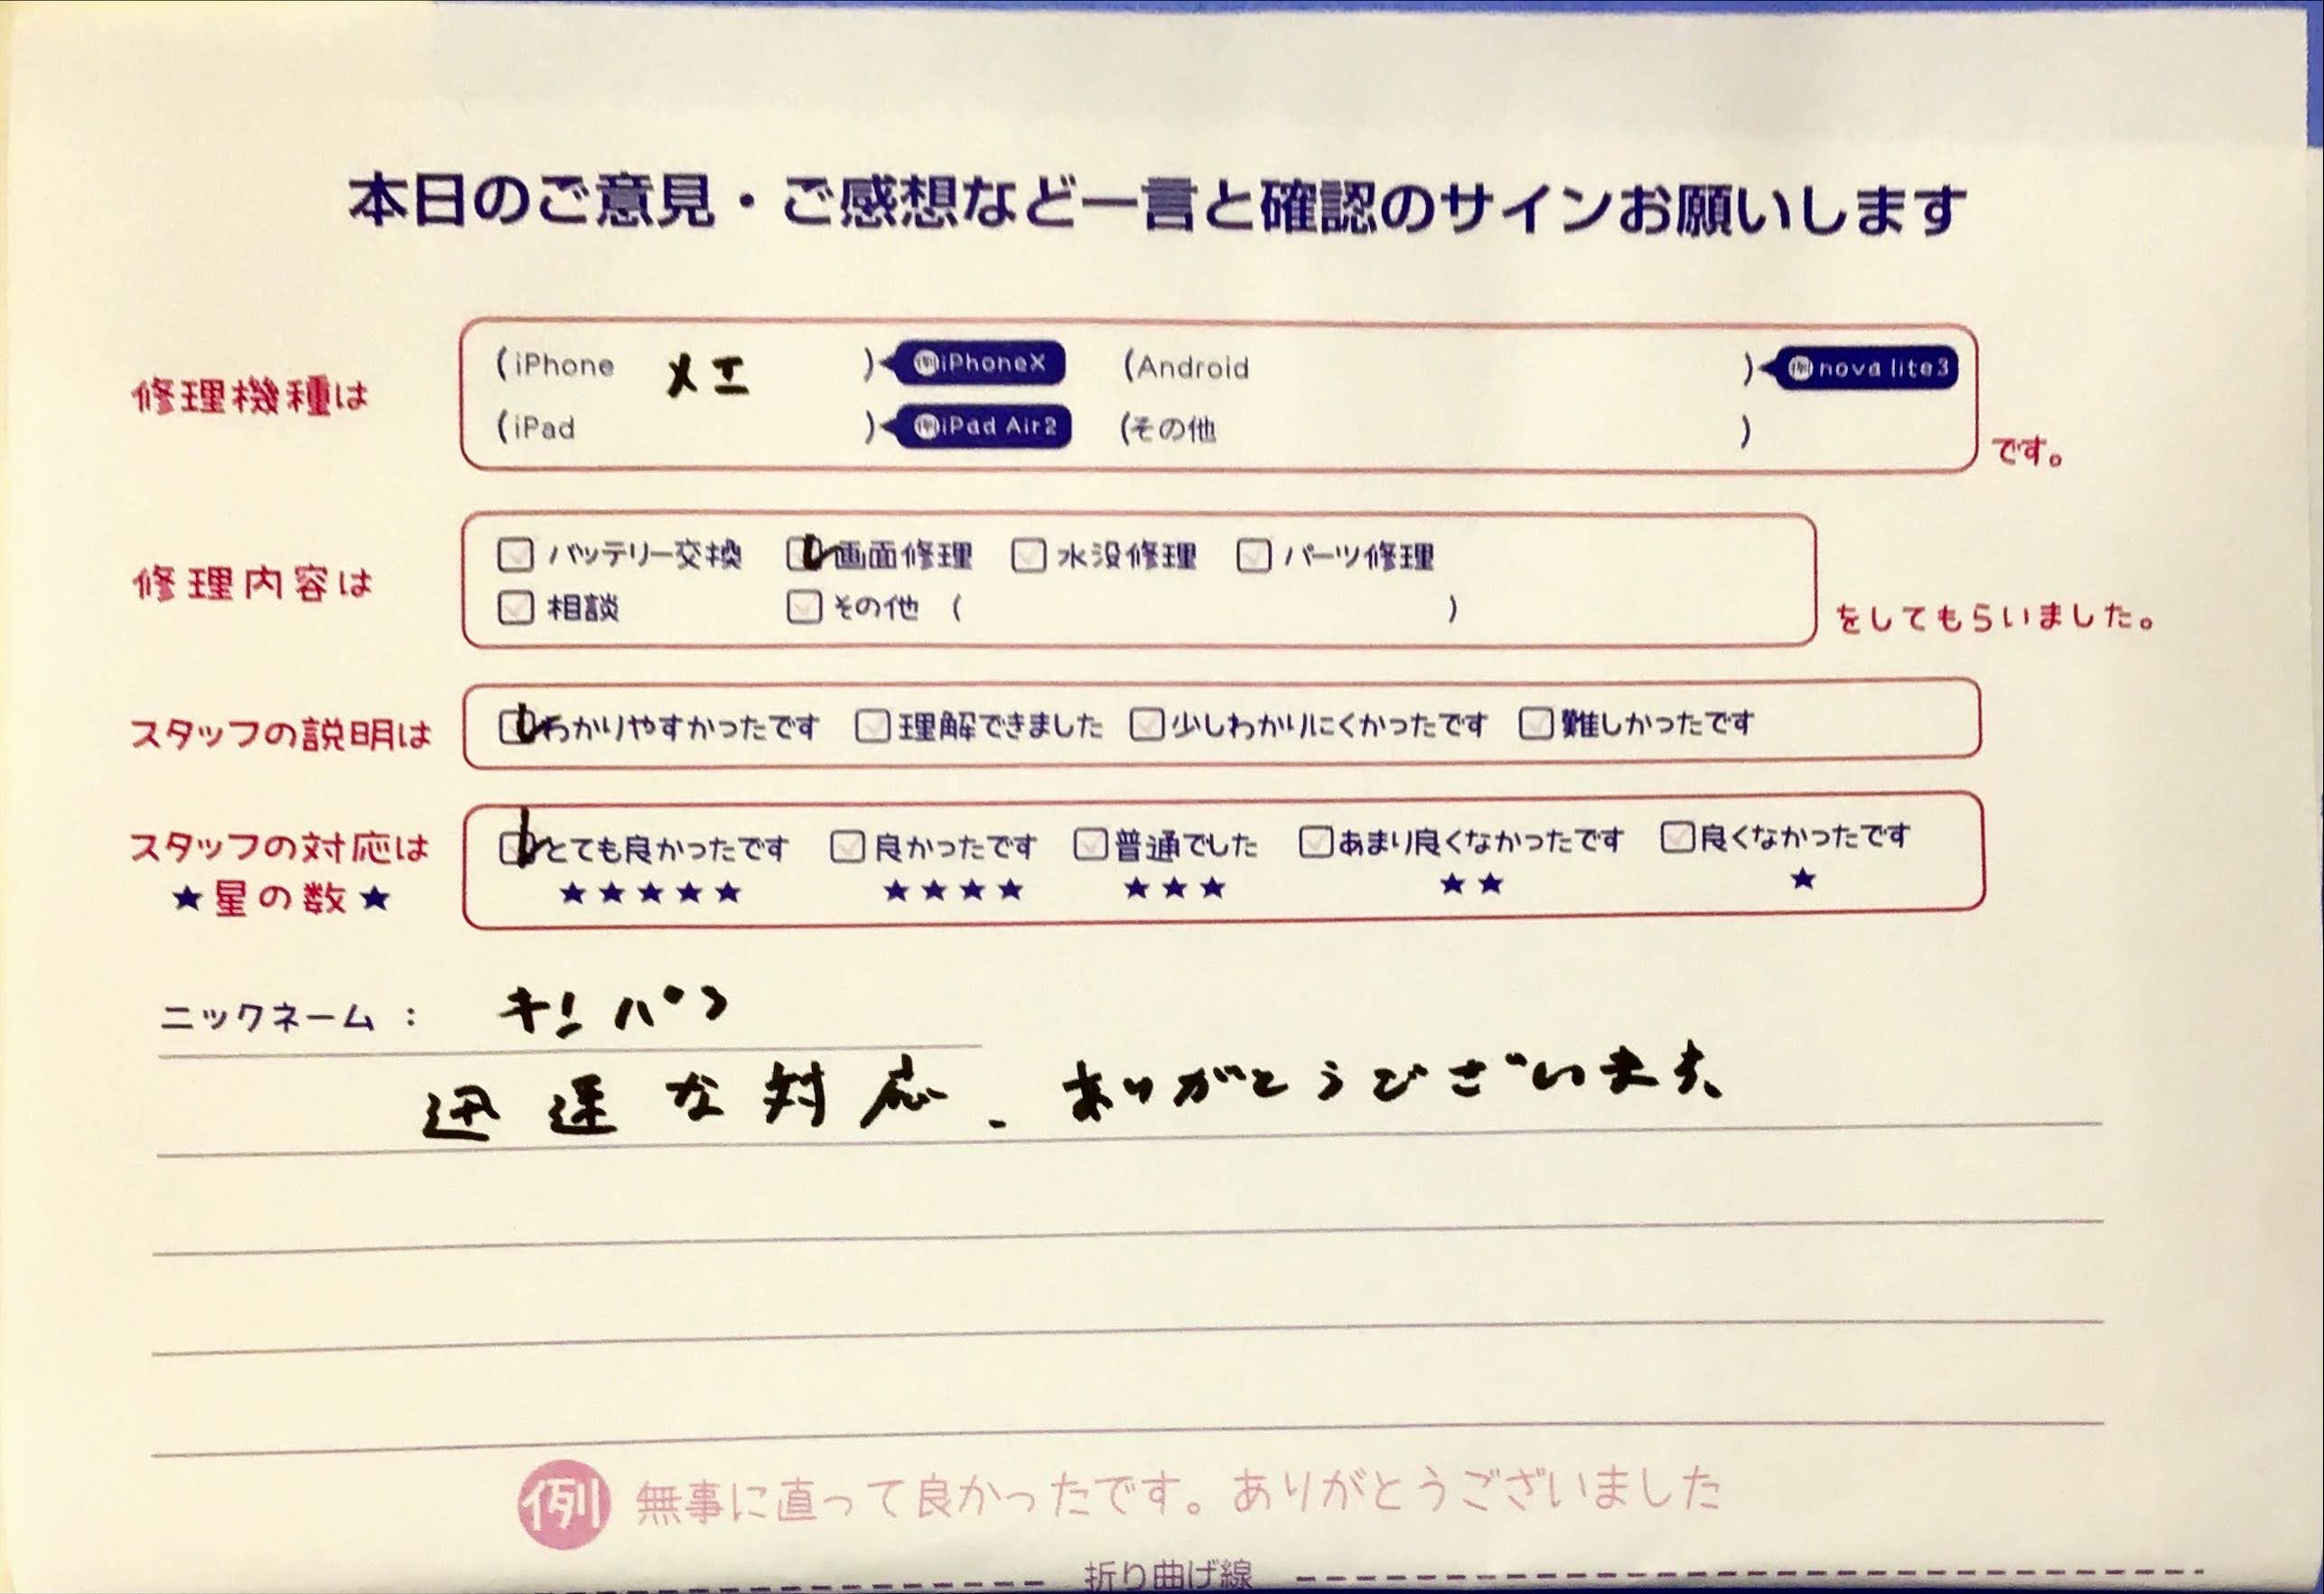 本日のご意見・ご感想など一言と確認のサインお願いします
修理機種は
(iPhone ) 例iPhoneX (Android ) 例nova lite3
(iPad ) 例iPad Air2 (その他 ) です。
修理内容は
バッテリー交換 画面修理 水没修理 パーツ修理
相談 その他 ( ) をしてもらいました。
スタッフの説明は わかりやすかったです 理解できました 少しわかりにくかったです 難しかったです
スタッフの対応は とても良かったです 良かったです 普通でした あまり良くなかったです 良くなかったです
★星の数★ ★★★★★ ★★★★ ★★★ ★★ ★
ニックネーム：
迅速な対応、ありがとうございます、
例 無事に直って良かったです。ありがとうございました
折り曲げ線